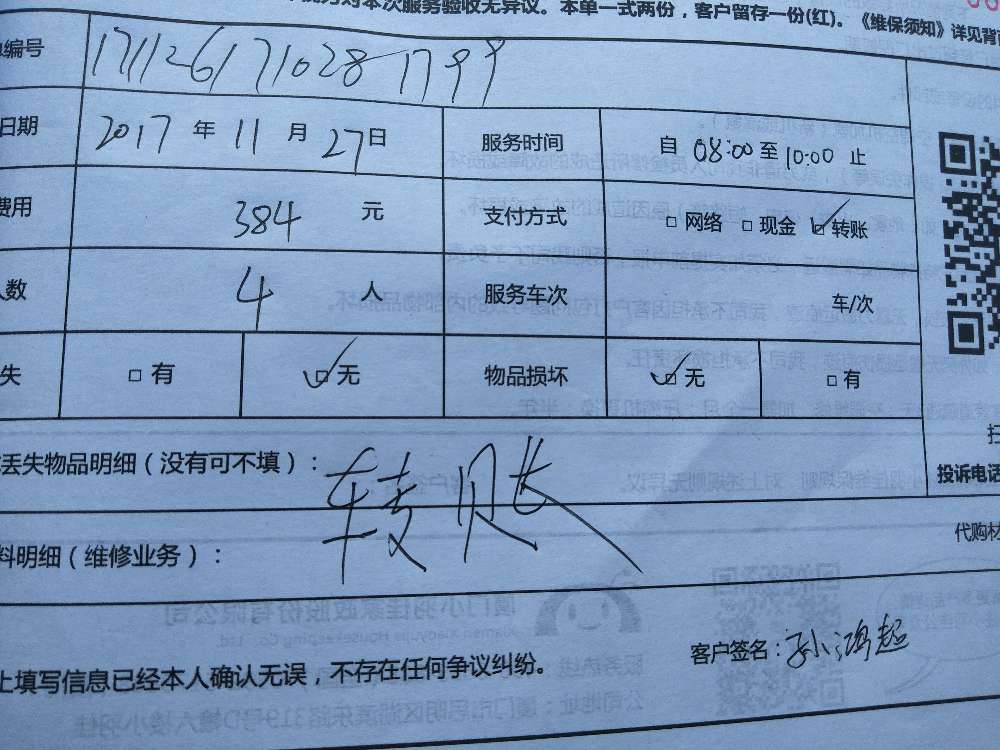 对本次服务验收无异议。本单一式两份，客户留存一份(红)。《维保须知》详见背
编号 171126171028 1799
日期 2017 年 11 月 27 日 服务时间 自 08:00 至 10:00 止
费用 384 元 支付方式 □ 网络 □ 现金 ☑ 转账
人数 4 人 服务车次 车/次
失 □ 有 ☑ 无 物品损坏 ☑ 无 □ 有
丢失物品明细（没有可不填）：
转账
投诉电话
料明细（维修业务）：
代购材
上填写信息已经本人确认无误，不存在任何争议纠纷。
客户签名：孙鸿超